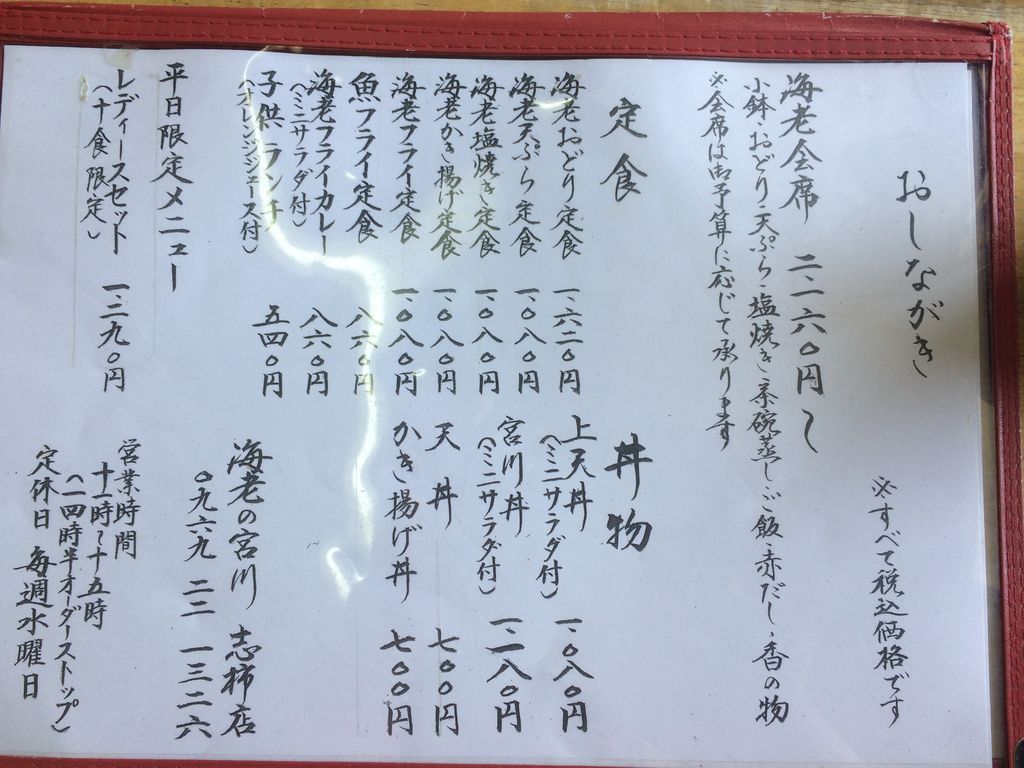 おしながき
※すべて税込価格です
海老会席 二、一六〇円〜
小鉢・おどり・天ぷら・塩焼き・茶碗蒸し・ご飯・赤だし・香の物
※会席は御予算に応じて承ります
定食
海老おどり定食 一、六二〇円
海老天ぷら定食 一、〇八〇円
海老塩焼き定食 一、〇八〇円
海老かき揚げ定食 一、〇八〇円
海老フライ定食 一、〇八〇円
魚フライ定食 八六〇円
海老フライカレー 八六〇円
（ミニサラダ付）
子供ランチ 五四〇円
（オレンジジュース付）
丼物
上天丼 一、〇八〇円
（ミニサラダ付）
宮川丼 一、二八〇円
（ミニサラダ付）
天丼 七〇〇円
かき揚げ丼 七〇〇円
平日限定メニュー
レディースセット 一、二九〇円
（十食限定）
海老の宮川 志柿店
〇九六九 二二 一三二六
営業時間
十一時〜十五時
（一四時半オーダーストップ）
定休日 毎週水曜日